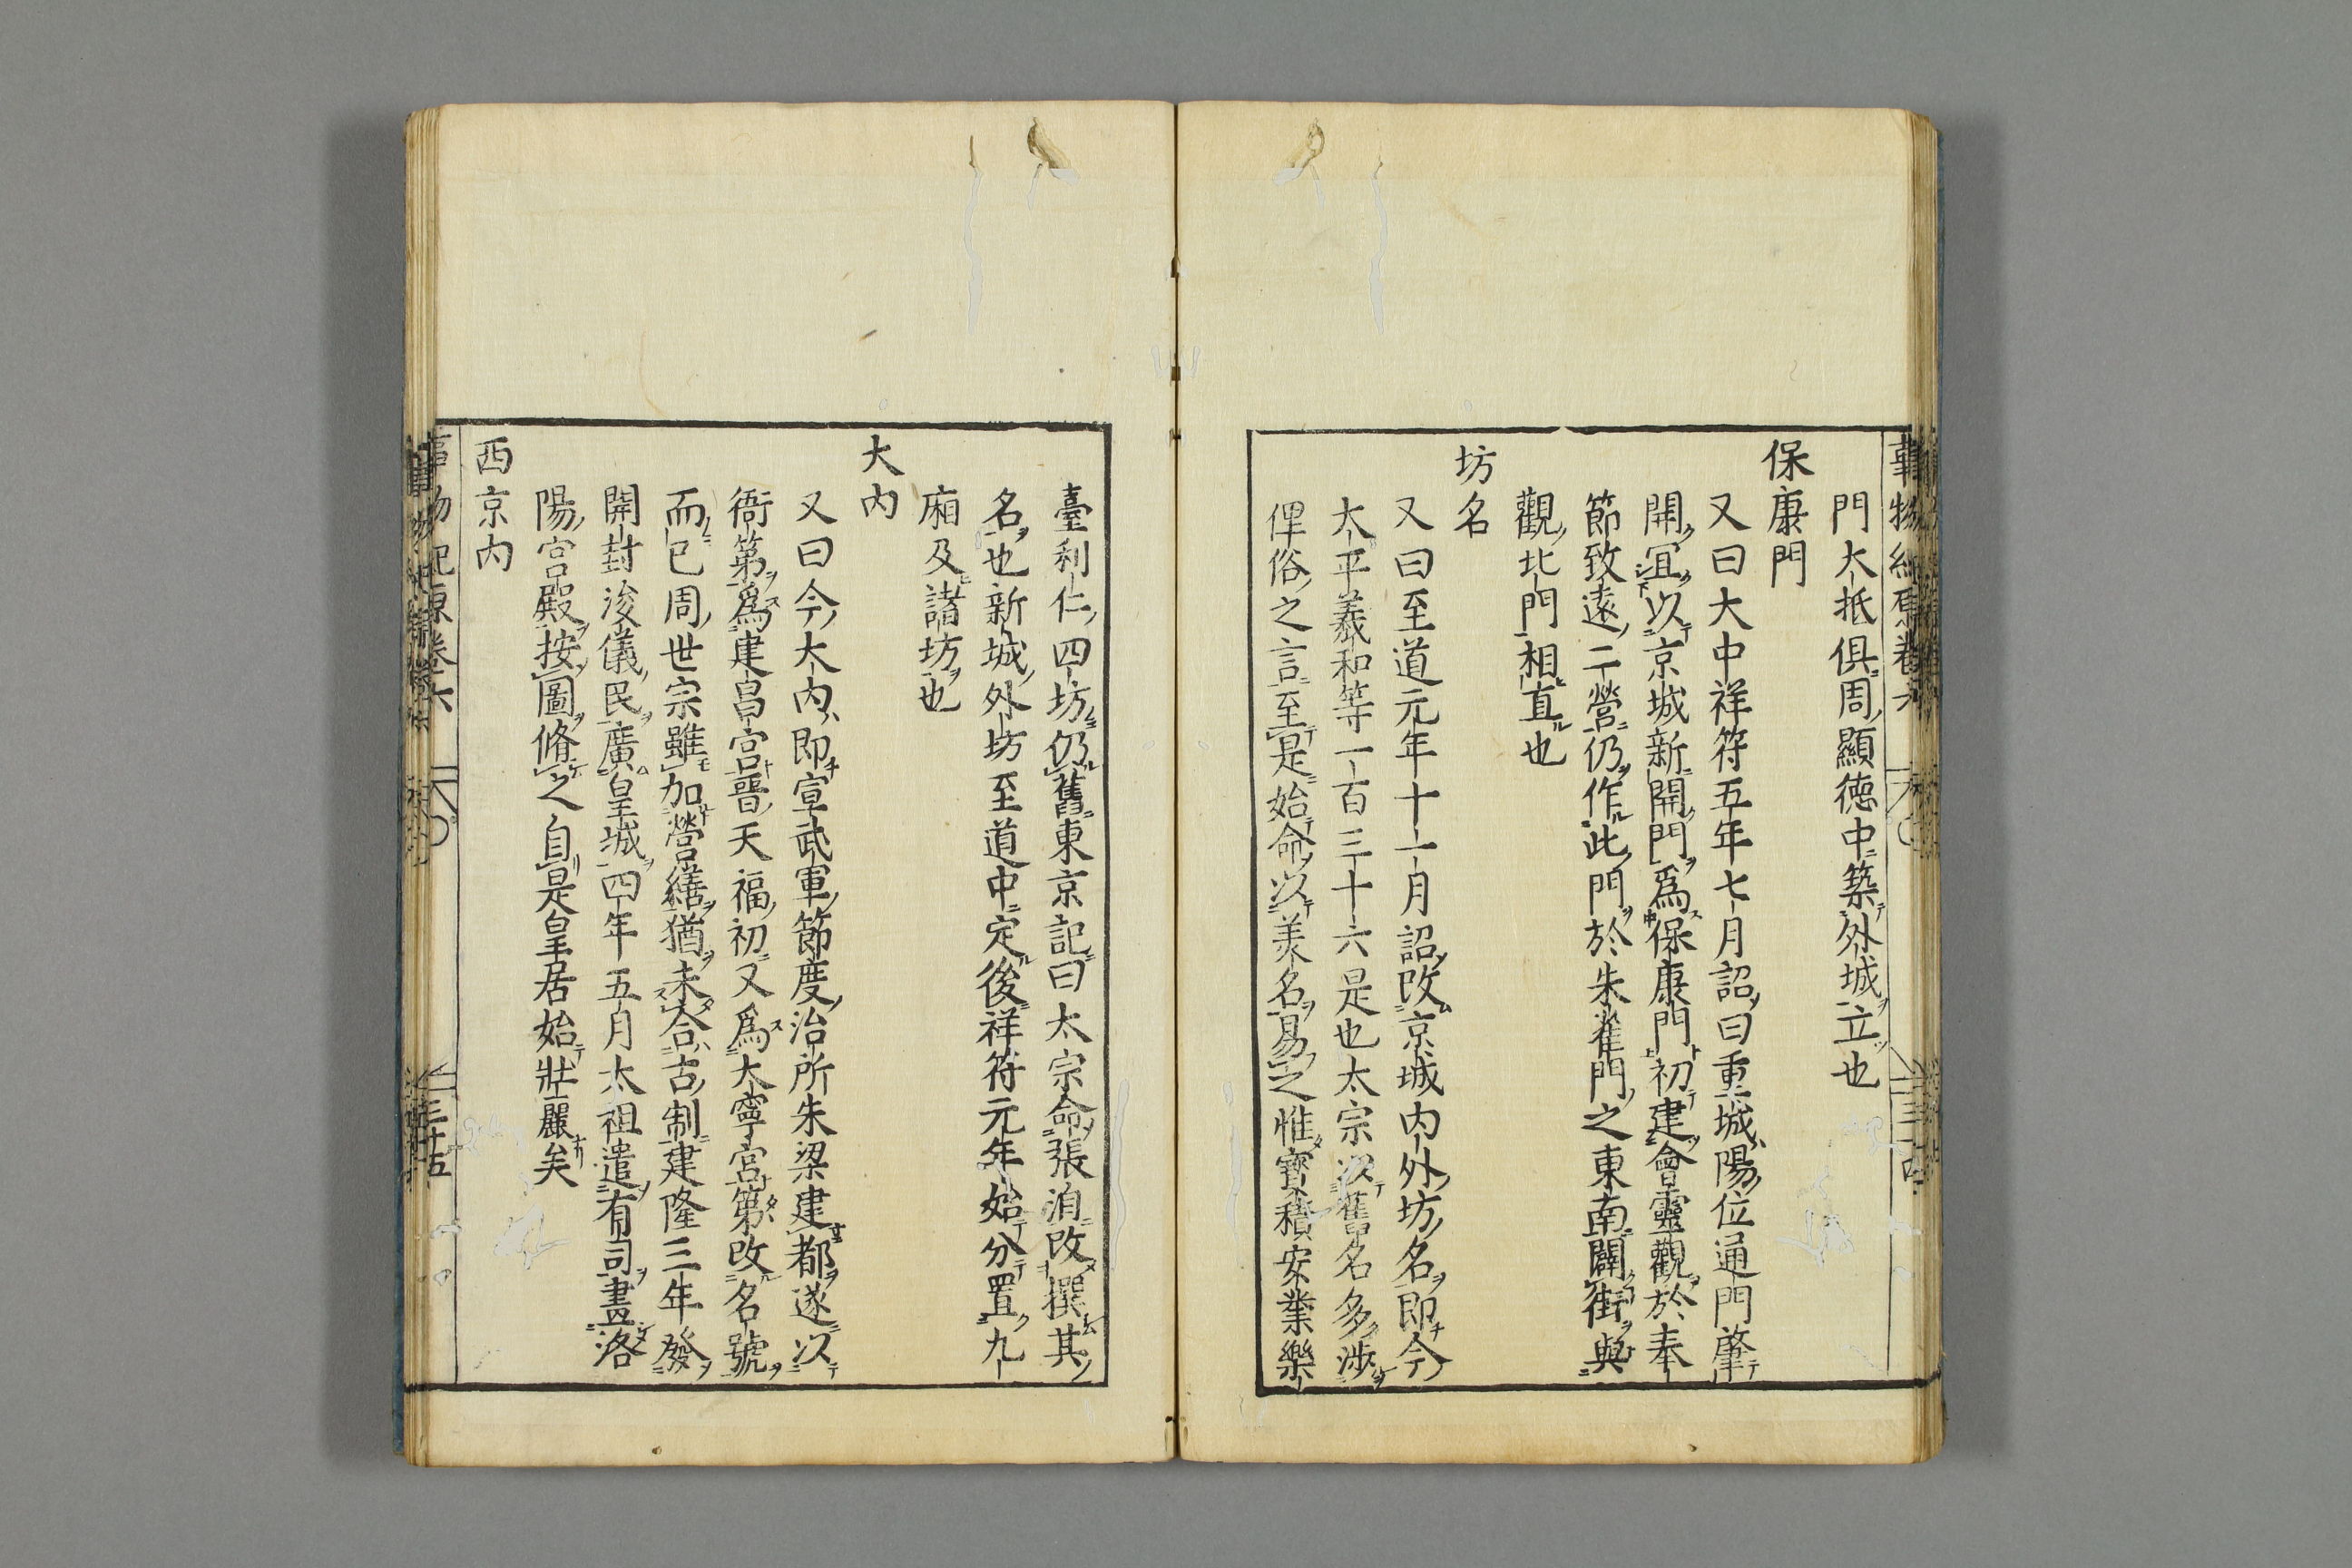 門大抵俱周顯徳中築外城立也
保康門
又曰大中祥符五年七月詔曰重城陽位通門肇
開冝以京城新開門爲保康門初建會靈觀於奉
節致遠二營仍作此門於朱雀門之東南闢街與
觀北門相直也
坊名
又曰至道元年十一月詔改京城内外坊名即今
太平義和等一百三十六是也太宗以舊名多涉
俚俗之言至是始命以美名易之惟寳積安業樂
臺利仁四坊仍舊東京記曰太宗命張洎改撰其
名也新城外坊至道中定後祥符元年始分置九
廂及諸坊也
大内
又曰今大内即宣武軍節度治所朱梁建都遂以
衙第爲建昌宮晉天福初又爲大寧宮第改名號
而已周世宗雖加營繕猶未合古制建隆三年發
開封浚儀民廣皇城四年五月太祖遣有司畫洛
陽宮殿按圖脩之自是皇居始壯麗矣
西京内
事物紀原卷六
三十五